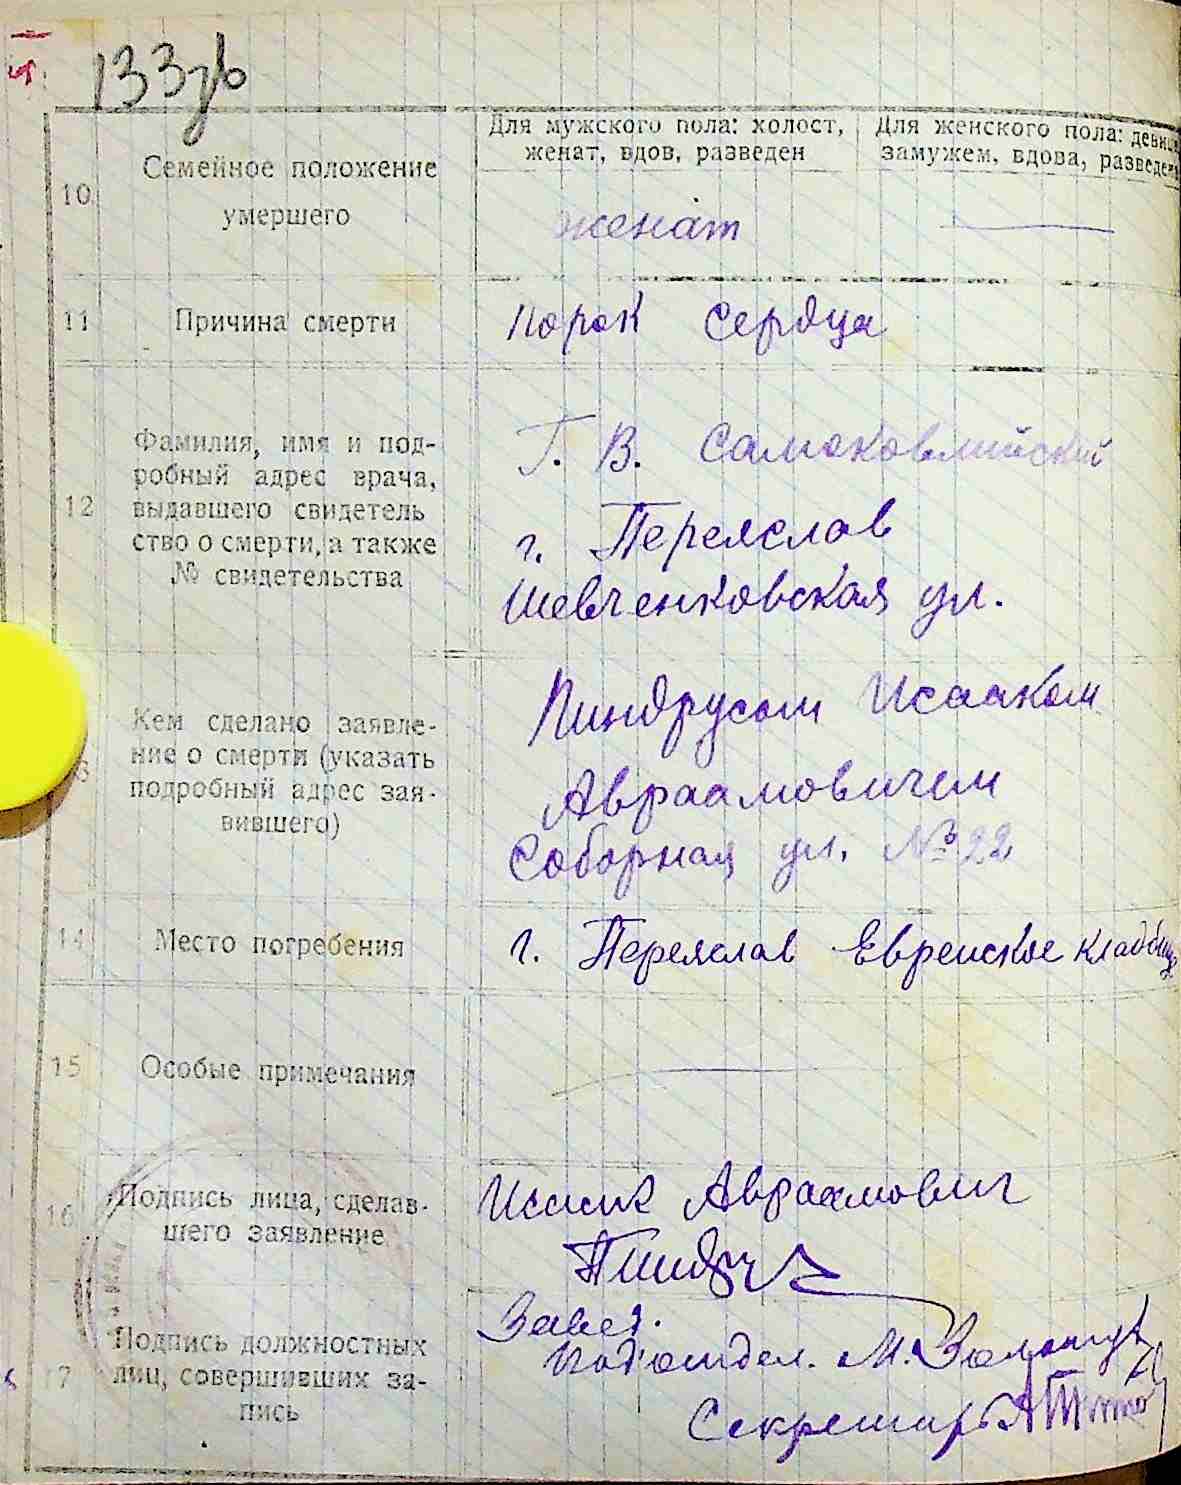 133зв
10
Семейное положение
умершего
Для мужского пола: холост,
женат, вдов, разведен
Для женского пола: девица
замужем, вдова, разведена
женат
11
Причина смерти
порок сердца
12
Фамилия, имя и под-
робный адрес врача,
выдавшего свидетель
ство о смерти, а также
№ свидетельства
Г. В. Самоковлийский
г. Переяслав
Шевченковская ул.
Кем сделано заявле-
ние о смерти (указать
подробный адрес зая-
вившего)
Пиндрусом Исааком
Авраамовичем
Соборная ул. № 22
14
Место погребения
г. Переяслав Евреиское кладбище
15
Особые примечания
16
Подпись лица, сделав-
шего заявление
Исаак Авраамович
Пиндрус
17
Подпись должностных
лиц, совершивших за-
пись
Завед.
Подотдел. М.
Секретарь